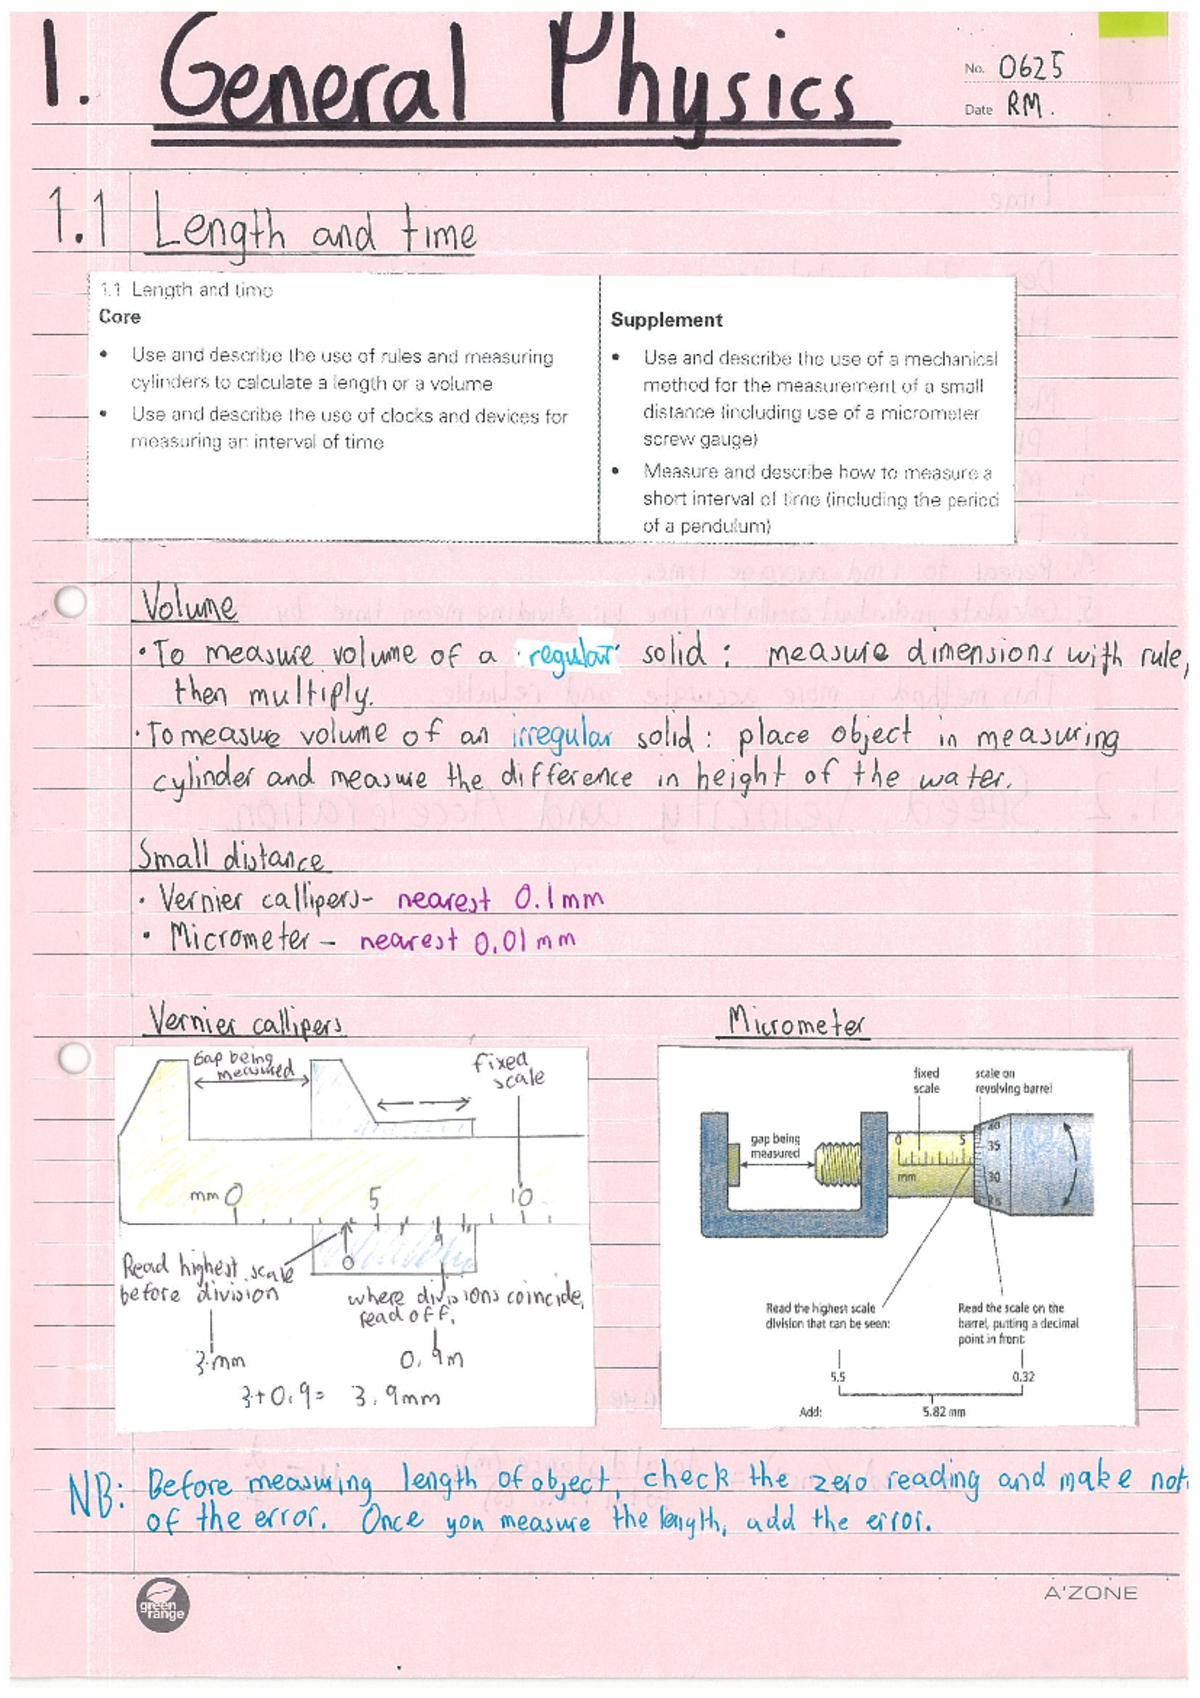 1. General Physics
No. 0625
Date RM.
1.1 Length and time
1.1 Length and time
Core
• Use and describe the use of rules and measuring
cylinders to calculate a length or a volume
• Use and describe the use of clocks and devices for
measuring an interval of time
Supplement
• Use and describe the use of a mechanical
method for the measurement of a small
distance (including use of a micrometer
screw gauge)
• Measure and describe how to measure a
short interval of time (including the period
of a pendulum)
Volume
• To measure volume of a regular solid : measure dimensions with rule,
then multiply.
• To measure volume of an irregular solid : place object in measuring
cylinder and measure the difference in height of the water.
Small distance
• Vernier callipers- nearest 0.1mm
• Micrometer - nearest 0.01mm
Vernier callipers
Gap being
measured
fixed
scale
mm 0 5 10
0 9
Read highest scale
before division
where divisions coincide,
read off.
3mm
0.9m
3+0.9= 3.9mm
Micrometer
fixed
scale
scale on
revolving barrel
gap being
measured
0 5
mm
40
35
30
25
Read the highest scale
division that can be seen:
Read the scale on the
barrel, putting a decimal
point in front:
5.5
0.32
Add: 5.82 mm
NB: Before measuring length of object, check the zero reading and make not
of the error. Once you measure the length, add the error.
green
range
A'ZONE